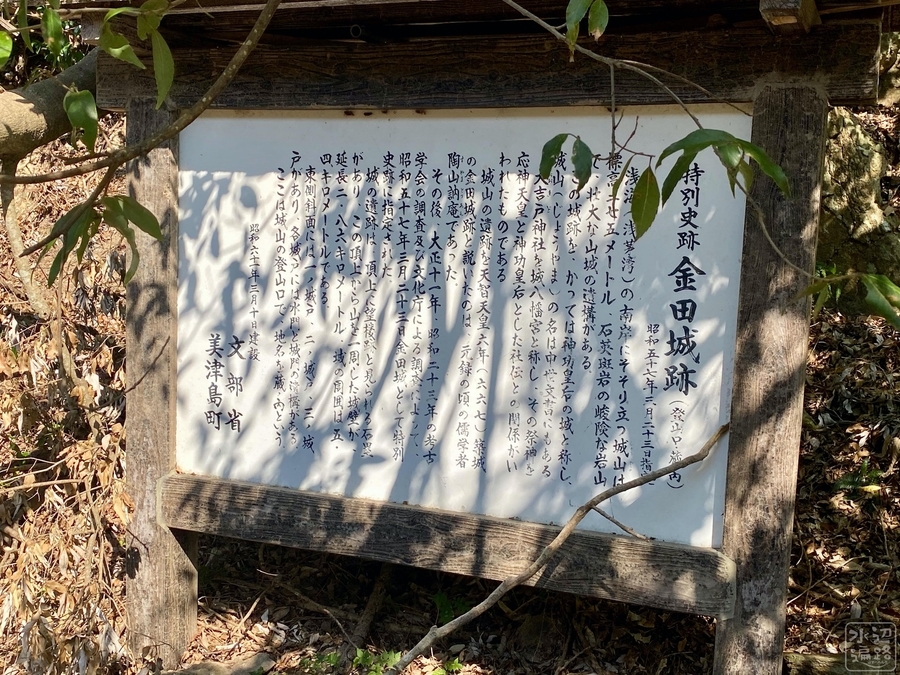 特別史跡 金田城跡（登山口・蔵内）
昭和五十七年三月二十三日指定
浅海（浅茅湾）の南岸にそそり立つ城山は
標高二七五メートル、石英斑岩の峻険な岩山
で、壮大な山城の遺構がある。
この城跡を、かつては神功皇后の城と称し、
城山（じょうやま）の名は中世文書にもある
大吉戸神社を城八幡宮と称し、その祭神を
応神天皇と神功皇后とした社伝との関係がい
われたものである
城山の遺跡を天智天皇六年（六六七）築城
の金田城跡と説いたのは、元禄の頃の儒学者
陶山訥庵であった
その後、大正十一年、昭和二十三年の考古
学会の調査及び文化庁による調査によって、
昭和五十七年三月二十三日金田城として特別
史跡に指定された
城の遺跡は、頂上に望楼跡と見られる石塁
があり、この頂上から山を一周した城壁が
延長二・八六キロメートル、城の周囲は五・
四キロメートルである。
東側斜面には一ノ城戸、二ノ城戸、三ノ城
戸があり、各城戸には水門と城門の遺構がある
ここは城山の登山口で、地名を蔵ノ内という
昭和六十三年三月十日建設
文部省
美津島町
水辺遍路